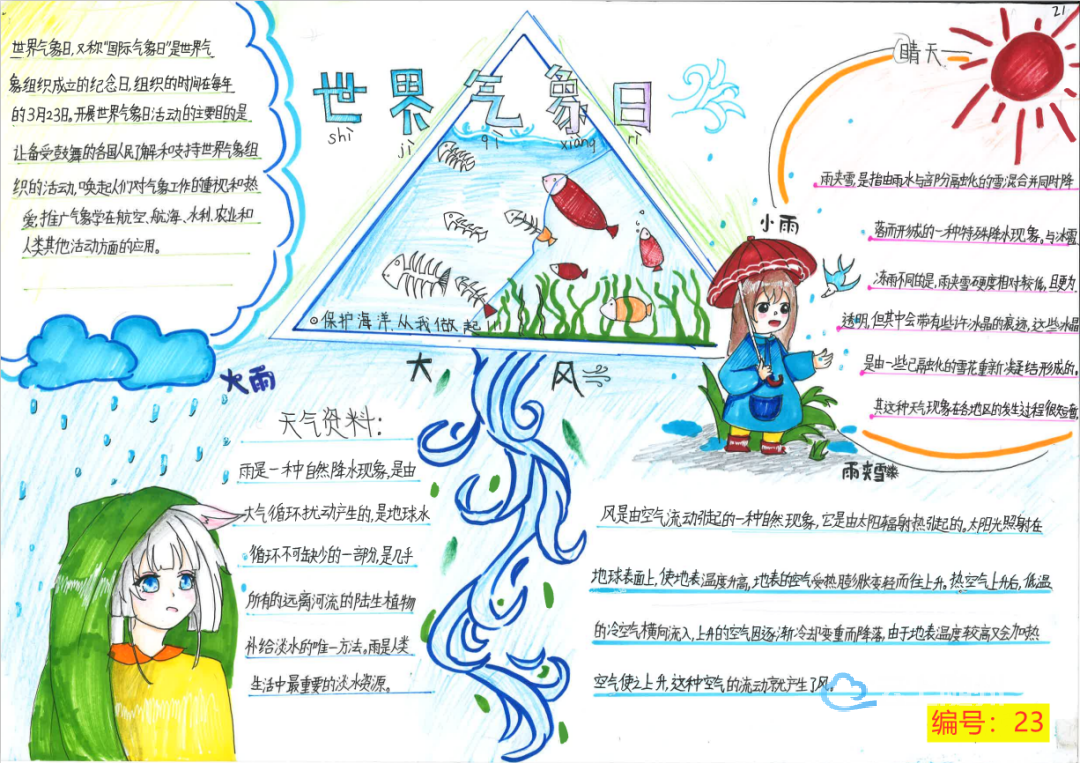 21
世界气象日
shì jì qì xiàng rì
世界气象日,又称“国际气象日”是世界气
象组织成立的纪念日,组织的时间在每年
的3月23日。开展世界气象日活动的主要目的是
让备受鼓舞的各国人民了解和支持世界气象组
织的活动,唤起人们对气象工作的重视和热
爱,推广气象学在航空、航海、水利、农业和
人类其他活动方面的应用。
保护海洋,从我做起!!!
晴天
小雨
雨夹雪,是指由雨水与部份融蚀化的雪混合并同时降
落而形成的一种特殊降水现象。与冰雪
冻雨不同的是,雨夹雪硬度相对较低,且更为
透明,但其中会带有些许冰晶的痕迹,这些冰晶
是由一些已融蚀化的雪花重新凝结形成的。
其这种天气现象在各地区的发生过程很短暂
雨夹雪
大雨
大风
天气资料:
雨是一种自然降水现象,是由
大气循环扰动产生的,是地球水
循环不可缺少的一部分,是几乎
所有的远离河流的陆生植物
补给淡水的唯一方法。雨是人类
生活中最重要的淡水资源。
风是由空气流动引起的一种自然现象,它是由太阳辐射热引起的。太阳光照射在
地球表面上,使地表温度升高,地表的空气受热膨胀变轻而往上升。热空气上升后,低温
的冷空气横向流入,上升的空气因逐渐冷却变重而降落,由于地表温度较高又会加热
空气使之上升,这种空气的流动就产生了风。
编号:23